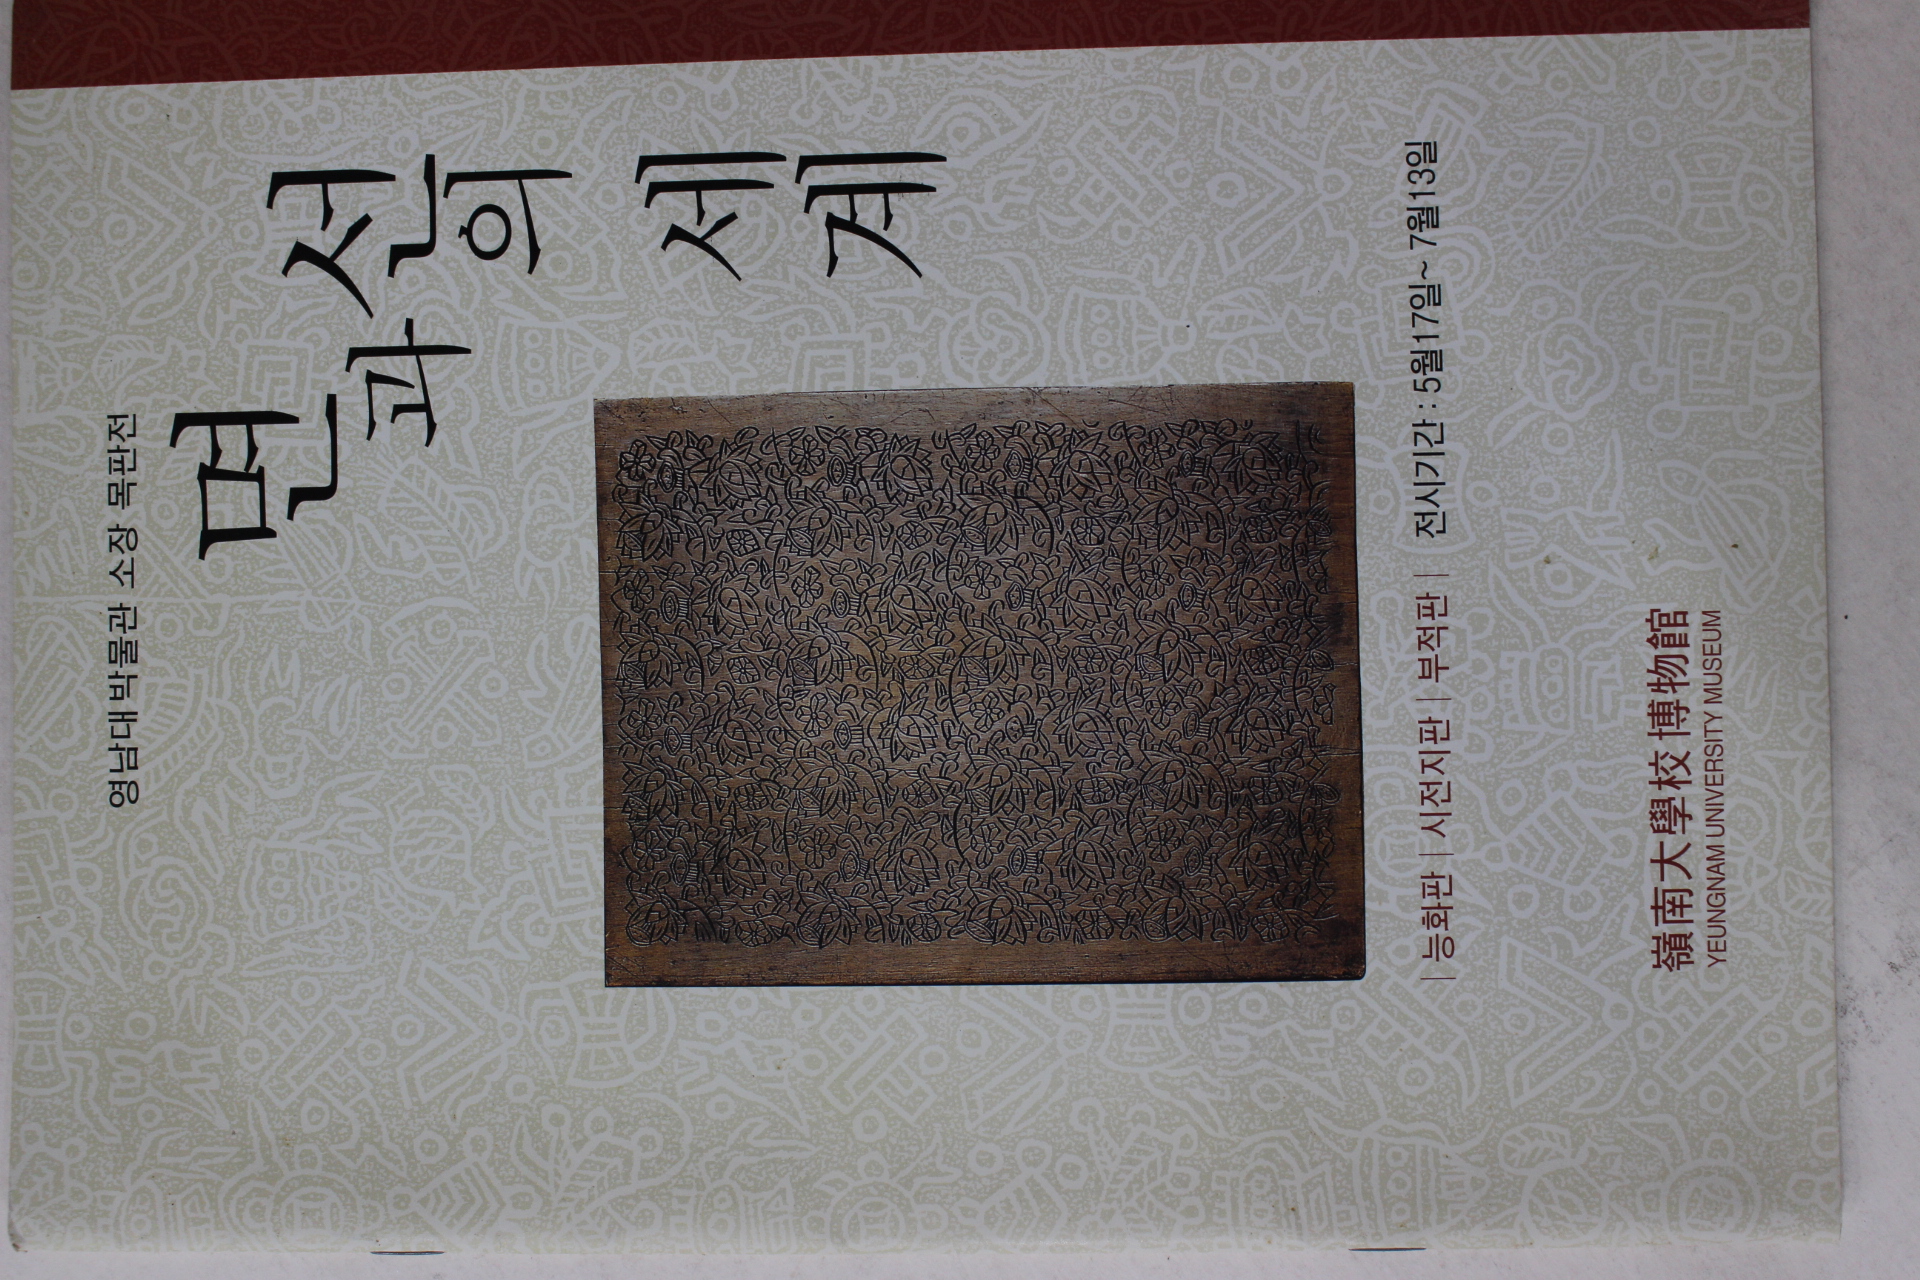 영남대박물관 소장 목판전
면과 선의 세계
| 능화판 | 시전지판 | 부적판 | 전시기간 : 5월17일~ 7월13일
嶺南大學校博物館
YEUNGNAM UNIVERSITY MUSEUM